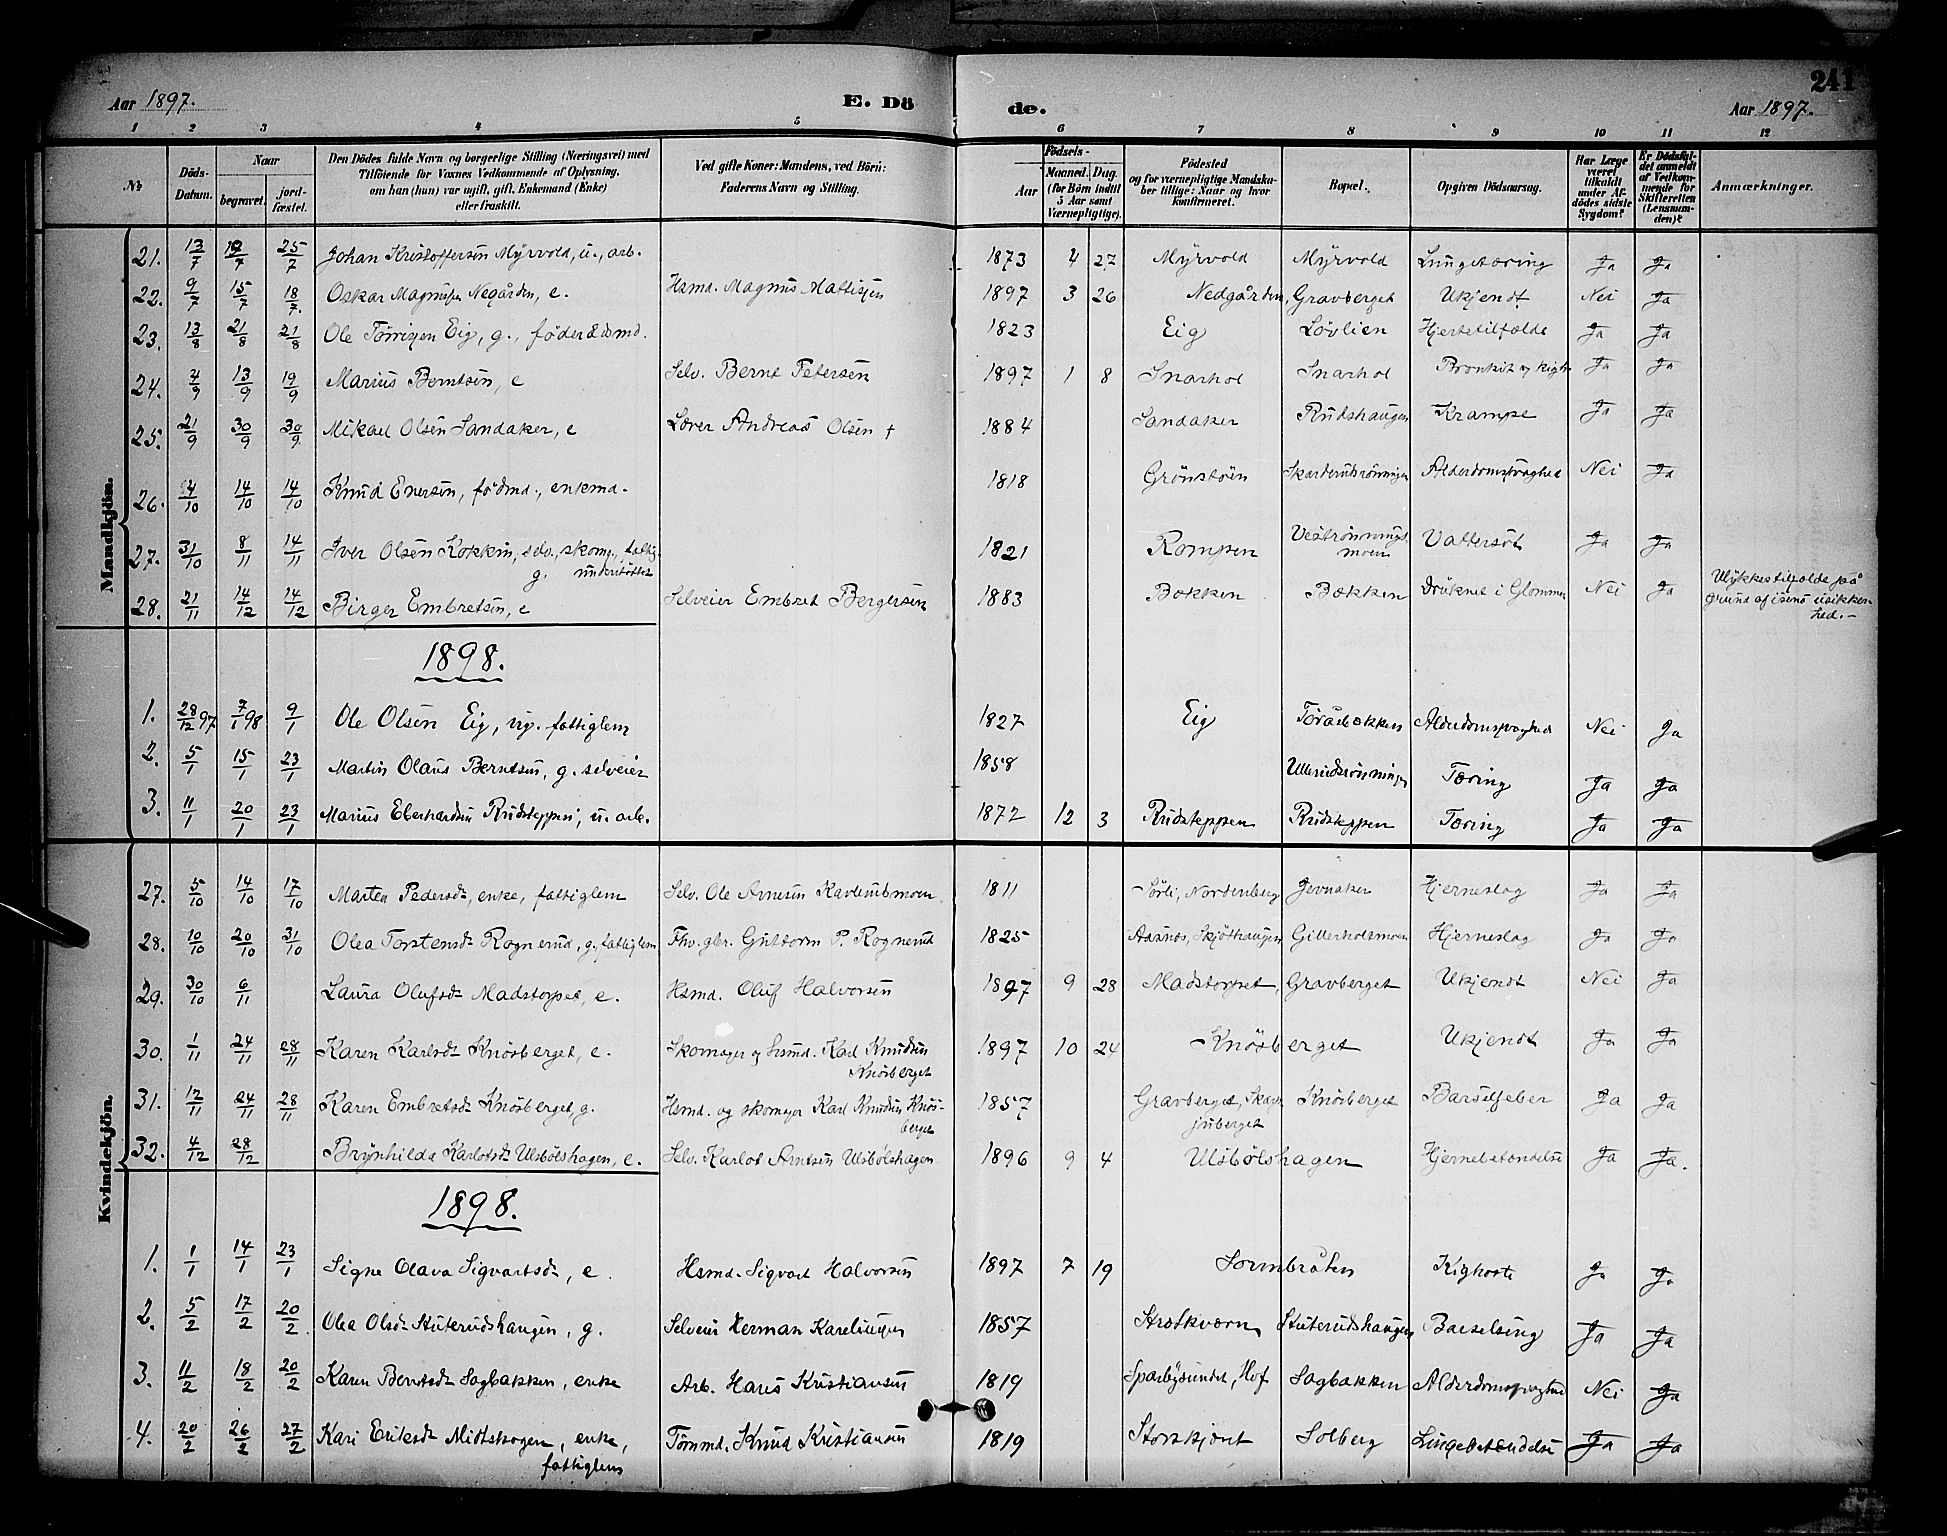 241
Aar 1897. E. Dö de. Aar 1897.
1 2 3 4 5 6 7 8 9 10 11 12
№ Döds-Datum. Naar begravet. jordfæstet. Den Dödes fulde Navn og borgerlige Stilling (Næringsvei) med Tilföiende for Voxnes Vedkommende af Oplysning, om han (hun) var ugift, gift, Enkemand (Enke) eller fraskilt. Ved gifte Koner: Mandens, ved Börn: Faderens Navn og Stilling. Födsels- Aar Maaned. Dag. (for Börn indtil 5 Aar samt Værnepligtige). Födested og for værnepligtige Mandskaber tillige: Naar og hvor konfirmeret. Bopæl. Opgiven Dödsaarsag. Har Læge været tilkaldt under Afdödes sidste Sygdom? Er Dödsfaldet anmeldt af Vedkommende for Skifteretten (Lensmanden)? Anmærkninger.
Mandkjön.
21. 13/7 19/7 25/7 Johan Kristoffersen Myrvold, u., arb. 1873 4 27 Myrvold Myrvold Lungetæring Ja Ja
22. 9/7 15/7 18/7. Oskar Magnusen Negården, e. Hsmd. Magnus Mattisen 1897 3 26 Nedgården, Gravberget Ukjendt Nei Ja
23. 13/8 21/8 21/8 Ole Tørrisen Eig, g., føderådsmd. 1823 Eig Løvlien Hjertetilfælde Ja Ja
24. 4/9 13/9 19/9 Marius Berntsen, e Selv. Bernt Petersen 1897 1 8 Snarhol Snarhol Bronkit og kigh. Ja Ja
25. 21/9 30/9 30/9 Mikael Olsen Sandaker, e Lærer Andreas Olsen † 1884 Sandaker Rudshaugen Krampe Ja Ja
26. 4/10 14/10 14/10 Knud Enersen, fødmd., enkemd. 1818 Grønstøen Skarderudsrønningen Alderdomssvaghed Nei Ja
27. 31/10 8/11 14/11 Iver Olsen Kokkin, selv., skom., fattig-
g. understøttet 1821 Rompen Vestrønnings-
moen Vattersot Ja Ja
28. 21/11 14/12 14/12 Birger Embretsen, e Selveier Embret Bergersen 1883 Bækken Bækken Druknet i Glommen Nei Ja Ulykkestilfælde på
grund af isens usikker-
hed.-
1898.
1. 28/12 97 7/1 98 9/1 Ole Olsen Eig, ug. fattiglem 1827 Eig Toråsbækken Alderdomssvaghed Nei Ja
2. 5/1 15/1 23/1 Martin Olaus Berntsen, g. selveier 1858 Ullerudsrønningen Tæring Ja Ja
3. 11/1 20/1 23/1 Marius Eberhardsen Rudsteppen, u. arb. 1872 12 3 Rudsteppen Rudsteppen Tæring Ja Ja
Kvindekjön.
27. 5/10 14/10 17/10 Marten Pedersd., enke, fattiglem Selv. Ole Arnesen Kavlerudsmoen 1811 Sørli, Nordenberg Jevnaker Hjerneslag Ja Ja
28. 10/10 20/10 31/10 Olea Torstensd. Rognerud, g., fattiglem Fhv. gbr. Guttorm P. Rognerud 1825 Aasnes, Skjøthaugen Gillerholsmoen Hjerneslag Ja Ja
29. 30/10 6/11 Laura Olufsd. Madstorpet, e. Hsmd. Oluf Halvorsen 1897 9 28 Madstorpet, Gravberget Ukjendt Nei Ja
30. 1/11 24/11 28/11 Karen Karlsd. Knøsberget, e. Skomager og hsmd. Karl Knudsen
Knøsberget 1897 10 24 Knøsberget Ukjendt Ja Ja
31. 12/11 24/11 28/11 Karen Embretsd. Knøsberget, g. Hsmd. og skomager Karl Knudsen Knøs-
berget 1857 Gravberget, Skasen
juberget Knøsberget Barselfeber Ja Ja
32. 4/12 28/12 Brynhilda Karlotsd. Ulsbølshagen, e. Selv. Karlot Arntsen Ulsbølshagen 1896 9 4 Ulsbølshagen Hjernebetændelse Ja Ja.
1898.
1. 1/1 14/1 23/1 Signe Olava Sigvartsd., e. Hsmd. Sigvart Halvorsen 1897 7 19 Sormbråten Kighoste Ja Ja
2. 5/2 17/2 20/2. Olea Olsd. Stuterudshaugen, g. Selveier Herman Karelinsen 1857 Strætkværn Stuterudshaugen Barselseng Ja Ja
3. 11/2 18/2 20/2 Karen Berntsd. Sagbakken, enke Arb. Hans Kristiansen 1819 Sparbysundet, Hof Sagbakken Alderdomssvaghed Nei Ja
4. 20/2 26/2 27/2 Kari Eriksd. Midtskogen, enke,
fattiglem Tømmd. Knud Kristiansen 1819 Storskjæret Solberg Lungebetændelse Ja Ja